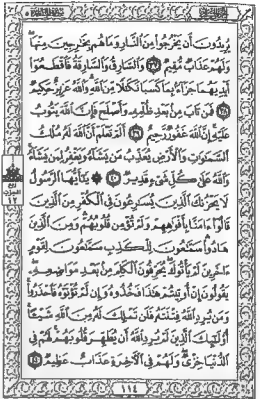 يُرِيدُونَ أَن يَخْرُجُوا۟ مِنَ ٱلنَّارِ وَمَا هُم بِخَٰرِجِينَ مِنْهَا ۖ
وَلَهُمْ عَذَابٌ مُّقِيمٌ ٣٧ وَٱلسَّارِقُ وَٱلسَّارِقَةُ فَٱقْطَعُوٓا۟
أَيْدِيَهُمَا جَزَآءًۢ بِمَا كَسَبَا نَكَٰلًا مِّنَ ٱللَّهِ ۗ وَٱللَّهُ عَزِيزٌ حَكِيمٌ
٣٨ فَمَن تَابَ مِنۢ بَعْدِ ظُلْمِهِۦ وَأَصْلَحَ فَإِنَّ ٱللَّهَ يَتُوبُ
عَلَيْهِ ۗ إِنَّ ٱللَّهَ غَفُورٌ رَّحِيمٌ ٣٩ أَلَمْ تَعْلَمْ أَنَّ ٱللَّهَ لَهُۥ مُلْكُ
ٱلسَّمَٰوَٰتِ وَٱلْأَرْضِ يُعَذِّبُ مَن يَشَآءُ وَيَغْفِرُ لِمَن يَشَآءُ ۗ
وَٱللَّهُ عَلَىٰ كُلِّ شَىْءٍ قَدِيرٌ ٤٠ ۞ يَٰٓأَيُّهَا ٱلرَّسُولُ
لَا يَحْزُنكَ ٱلَّذِينَ يُسَٰرِعُونَ فِى ٱلْكُفْرِ مِنَ ٱلَّذِينَ
قَالُوٓا۟ ءَامَنَّا بِأَفْوَٰهِهِمْ وَلَمْ تُؤْمِن قُلُوبُهُمْ ۛ وَمِنَ ٱلَّذِينَ
هَادُوا۟ ۛ سَمَّٰعُونَ لِلْكَذِبِ سَمَّٰعُونَ لِقَوْمٍ
ءَاخَرِينَ لَمْ يَأْتُوكَ ۖ يُحَرِّفُونَ ٱلْكَلِمَ مِنۢ بَعْدِ مَوَاضِعِهِۦ ۖ
يَقُولُونَ إِنْ أُوتِيتُمْ هَٰذَا فَخُذُوهُ وَإِن لَّمْ تُؤْتَوْهُ فَٱحْذَرُوا۟ ۚ
وَمَن يُرِدِ ٱللَّهُ فِتْنَتَهُۥ فَلَن تَمْلِكَ لَهُۥ مِنَ ٱللَّهِ شَيْـًٔا ۚ
أُو۟لَٰٓئِكَ ٱلَّذِينَ لَمْ يُرِدِ ٱللَّهُ أَن يُطَهِّرَ قُلُوبَهُمْ ۚ لَهُمْ فِى
ٱلدُّنْيَا خِزْىٌ ۖ وَلَهُمْ فِى ٱلْءَاخِرَةِ عَذَابٌ عَظِيمٌ ٤١
ربع
الحزب
١٢
١١٤